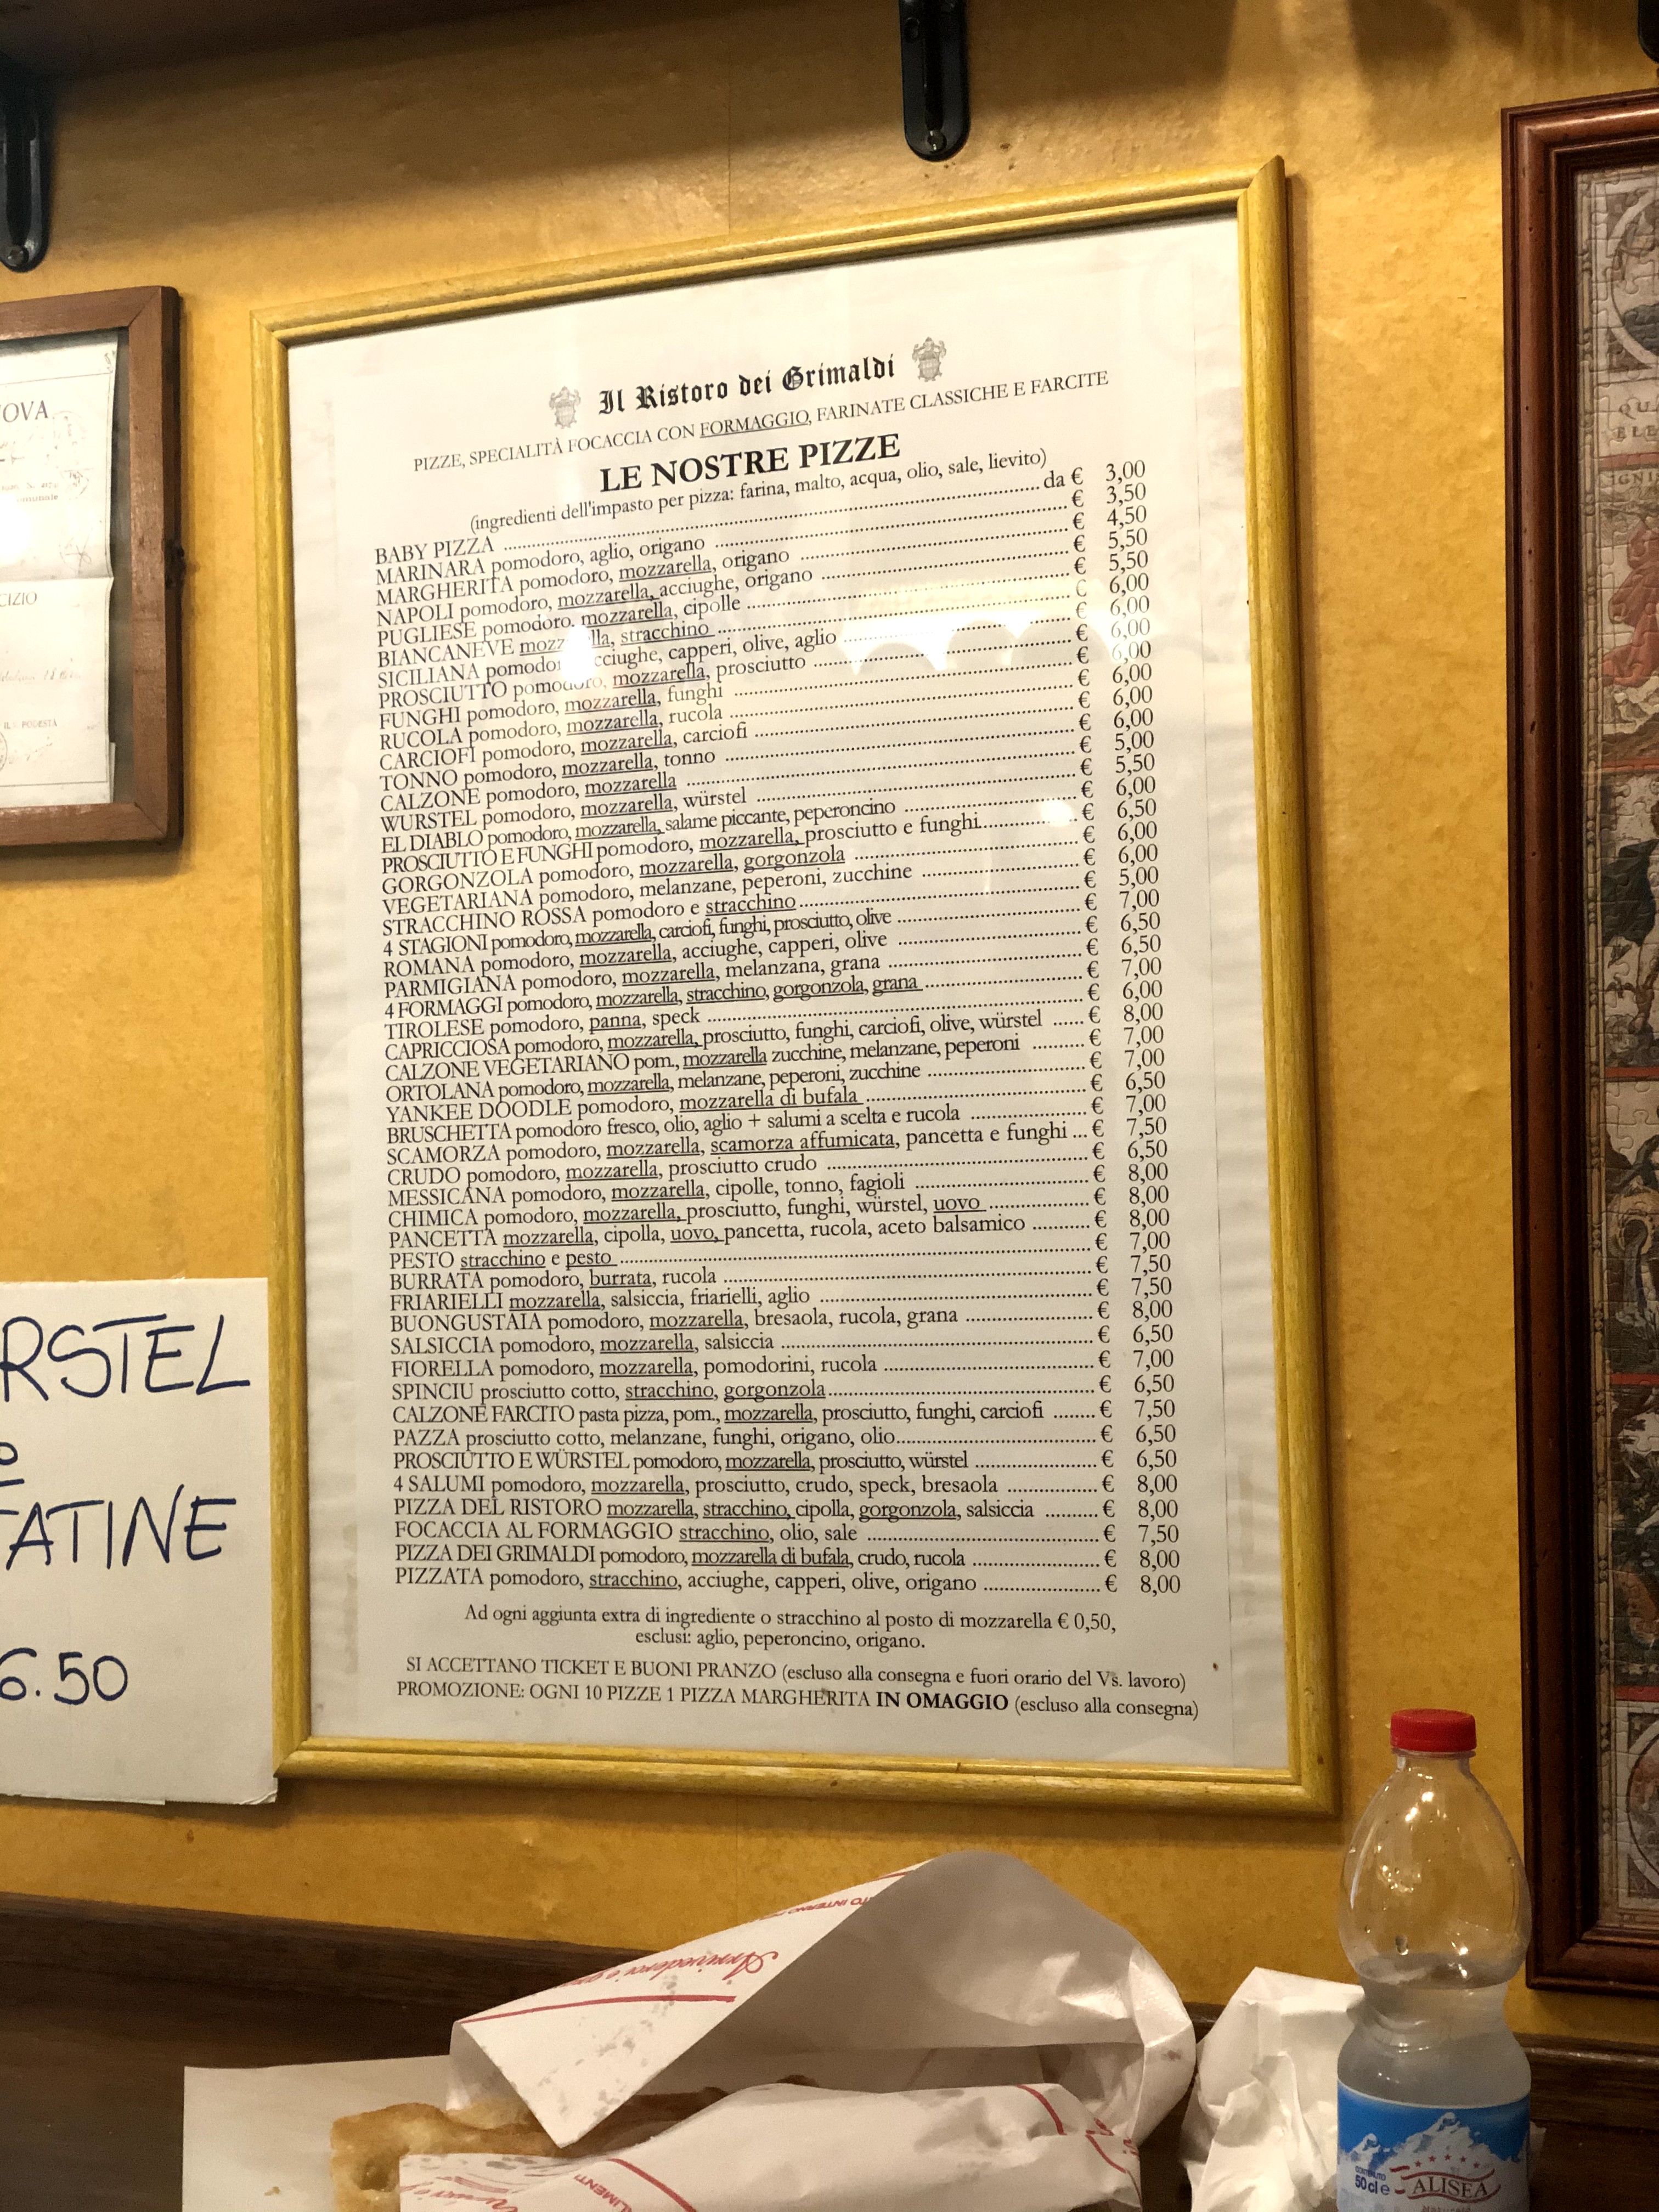 Il Ristoro dei Grimaldi
PIZZE, SPECIALITÀ FOCACCIA CON FORMAGGIO, FARINATE CLASSICHE E FARCITE
LE NOSTRE PIZZE
(ingredienti dell'impasto per pizza: farina, malto, acqua, olio, sale, lievito)
BABY PIZZA da € 3,00
MARINARA pomodoro, aglio, origano € 3,50
MARGHERITA pomodoro, mozzarella, origano € 4,50
NAPOLI pomodoro, mozzarella, acciughe, origano € 5,50
PUGLIESE pomodoro, mozzarella, cipolle € 5,50
BIANCANEVE mozzarella, stracchino € 6,00
SICILIANA pomodoro, acciughe, capperi, olive, aglio € 6,00
PROSCIUTTO pomodoro, mozzarella, prosciutto € 6,00
FUNGHI pomodoro, mozzarella, funghi € 6,00
RUCOLA pomodoro, mozzarella, rucola € 6,00
CARCIOFI pomodoro, mozzarella, carciofi € 6,00
TONNO pomodoro, mozzarella, tonno € 6,00
CALZONE pomodoro, mozzarella € 5,00
WURSTEL pomodoro, mozzarella, würstel € 5,50
EL DIABLO pomodoro, mozzarella, salame piccante, peperoncino € 6,00
PROSCIUTTO E FUNGHI pomodoro, mozzarella, prosciutto e funghi € 6,50
GORGONZOLA pomodoro, mozzarella, gorgonzola € 6,00
VEGETARIANA pomodoro, melanzane, peperoni, zucchine € 6,00
STRACCHINO ROSSA pomodoro e stracchino € 5,00
4 STAGIONI pomodoro, mozzarella, carciofi, funghi, prosciutto, olive € 7,00
ROMANA pomodoro, mozzarella, acciughe, capperi, olive € 6,50
PARMIGIANA pomodoro, mozzarella, melanzana, grana € 6,50
4 FORMAGGI pomodoro, mozzarella, stracchino, gorgonzola, grana € 7,00
TIROLESE pomodoro, panna, speck € 6,00
CAPRICCIOSA pomodoro, mozzarella, prosciutto, funghi, carciofi, olive, würstel € 8,00
CALZONE VEGETARIANO pom., mozzarella zucchine, melanzane, peperoni € 7,00
ORTOLANA pomodoro, mozzarella, melanzane, peperoni, zucchine € 7,00
YANKEE DOODLE pomodoro, mozzarella di bufala € 6,50
BRUSCHETTA pomodoro fresco, olio, aglio + salumi a scelta e rucola € 7,00
SCAMORZA pomodoro, mozzarella, scamorza affumicata, pancetta e funghi € 7,50
CRUDO pomodoro, mozzarella, prosciutto crudo € 6,50
MESSICANA pomodoro, mozzarella, cipolle, tonno, fagioli € 8,00
CHIMICA pomodoro, mozzarella, prosciutto, funghi, würstel, uovo € 8,00
PANCETTA mozzarella, cipolla, uovo, pancetta, rucola, aceto balsamico € 8,00
PESTO stracchino e pesto € 7,00
BURRATA pomodoro, burrata, rucola € 7,50
FRIARIELLI mozzarella, salsiccia, friarielli, aglio € 7,50
BUONGUSTAIA pomodoro, mozzarella, bresaola, rucola, grana € 8,00
SALSICCIA pomodoro, mozzarella, salsiccia € 6,50
FIORELLA pomodoro, mozzarella, pomodorini, rucola € 7,00
SPINCIU prosciutto cotto, stracchino, gorgonzola € 6,50
CALZONE FARCITO pasta pizza, pom., mozzarella, prosciutto, funghi, carciofi € 7,50
PAZZA prosciutto cotto, melanzane, funghi, origano, olio € 6,50
PROSCIUTTO E WÜRSTEL pomodoro, mozzarella, prosciutto, würstel € 6,50
4 SALUMI pomodoro, mozzarella, prosciutto, crudo, speck, bresaola € 8,00
PIZZA DEL RISTORO mozzarella, stracchino, cipolla, gorgonzola, salsiccia € 8,00
FOCACCIA AL FORMAGGIO stracchino, olio, sale € 7,50
PIZZA DEI GRIMALDI pomodoro, mozzarella di bufala, crudo, rucola € 8,00
PIZZATA pomodoro, stracchino, acciughe, capperi, olive, origano € 8,00
Ad ogni aggiunta extra di ingrediente o stracchino al posto di mozzarella € 0,50,
esclusi: aglio, peperoncino, origano.
SI ACCETTANO TICKET E BUONI PRANZO (escluso alla consegna e fuori orario del Vs. lavoro)
PROMOZIONE: OGNI 10 PIZZE 1 PIZZA MARGHERITA IN OMAGGIO (escluso alla consegna)
OVA
CIZIO
IL PODESTÀ
RSTEL
o
TATINE
6.50
QU
ELE
IGNI
Arrivederci e gra
TO INTERNO
LIMENTI
50cl e
ALISEA